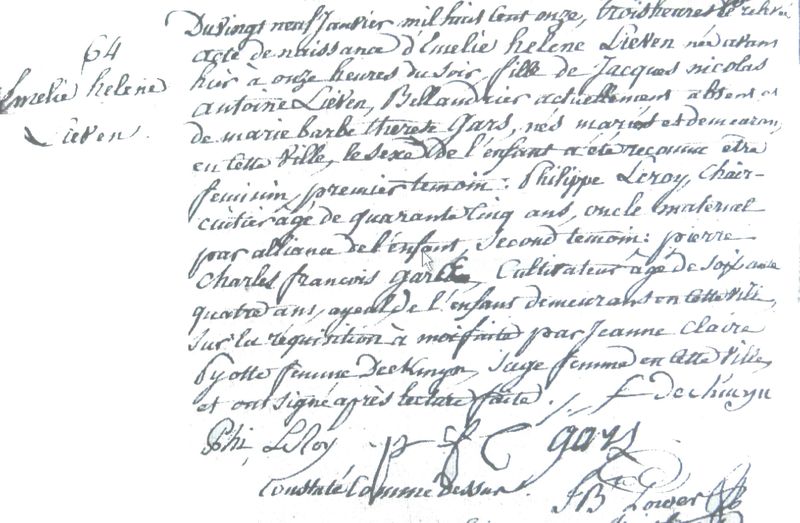 64
Emelie helene
Lieven.
Du vingt neuf Janvier mil huit Cent onze, trois heures de relevé
acte de naissance d'Emelie helene Lieven née avant
hier à onze heures du soir, fille de Jacques nicolas
antoine Lieven, Billandrier actuellement absent et
de marie barbe therese Gars, nés mariés et demeurans
en cette Ville, le sexe de l'enfant a été reconnu être
feminin, premier temoin: Philippe Leroy, Chair-
cuitier âgé de quarante Cinq ans, oncle maternel
par alliance de l'enfant, Second temoin: pierre
Charles françois Gars, Cultivateur âgé de soixante
quatre ans, ayeul de l'enfant demeurans en cette Ville,
sur la requisition à moi faite par Jeanne Claire
Pyotte femme, Sage femme en cette Ville,
et ont signé après lecture faite.
Phi LeRoy p f C gars
Constaté Comme dessus.